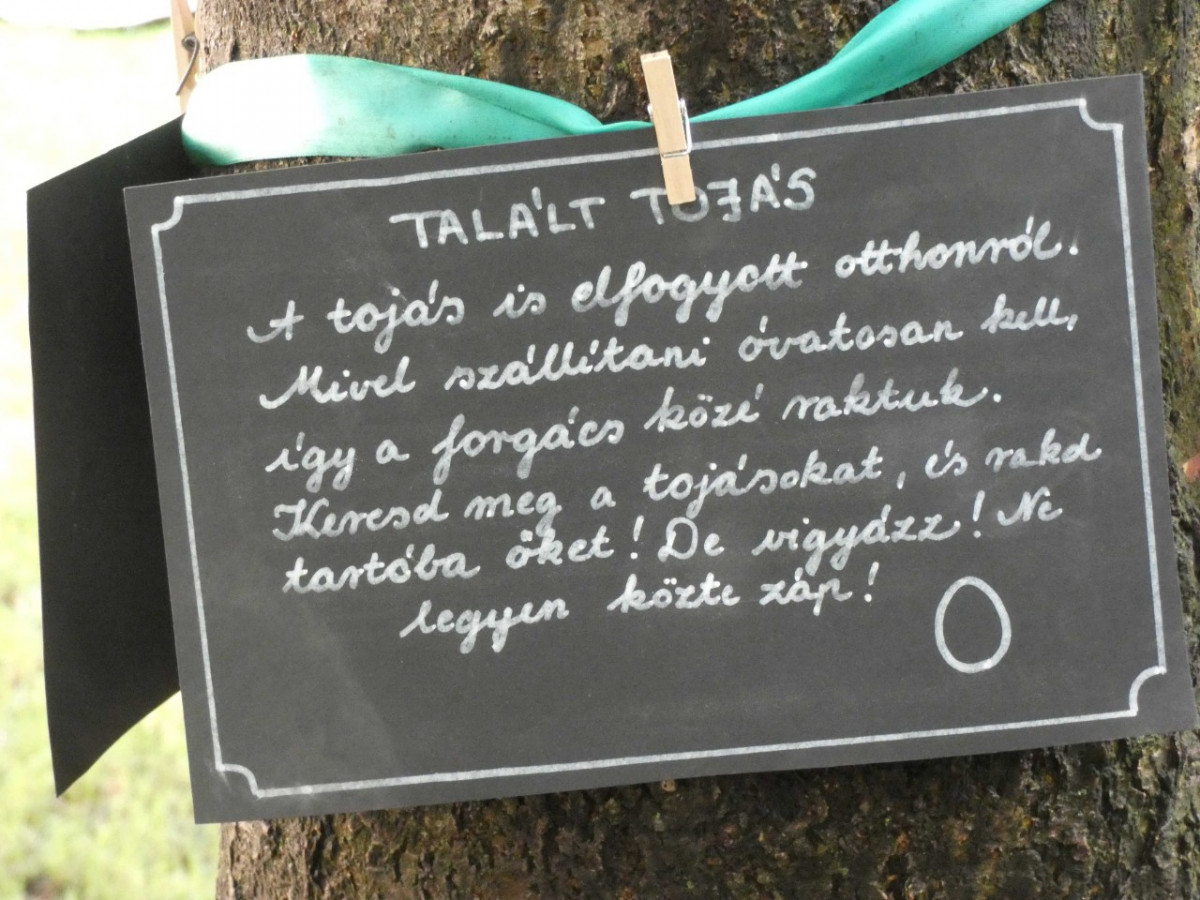 TALÁLT TOJÁS
A tojás is elfogyott otthonról.
Mivel szállítani óvatosan kell,
így a forgács közé raktuk.
Keresd meg a tojásokat, és rakd
tartóba őket! De vigyázz! Ne
legyen közte záp!